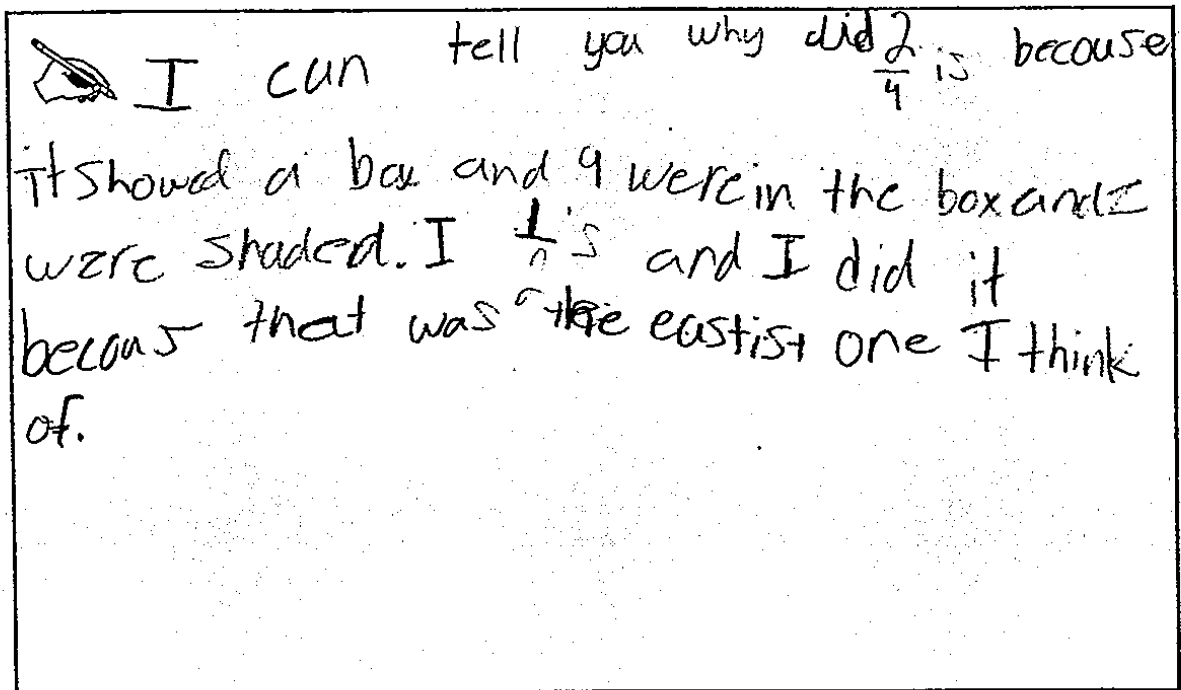 I can tell you why did 2/4 is becouse
it showed a box and 4 were in the box and 2
were shaded. I 1/ 's and I did it
becaus that was the eastist one I think
of.